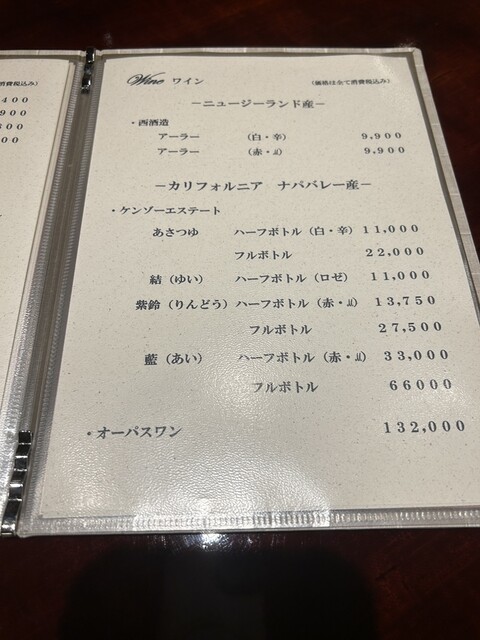 消費税込み）
400
900
Wine ワイン （価格は全て消費税込み）
－ニュージーランド産－
・西酒造
アーラー （白・辛） 9,900
アーラー （赤・㎗） 9,900
－カリフォルニア ナパバレー産－
・ケンゾーエステート
あさつゆ ハーフボトル（白・辛） 11,000
フルボトル 22,000
結（ゆい） ハーフボトル（ロゼ） 11,000
紫鈴（りんどう） ハーフボトル（赤・㎗） 13,750
フルボトル 27,500
藍（あい） ハーフボトル（赤・㎗） 33,000
フルボトル 66000
・オーパスワン 132,000